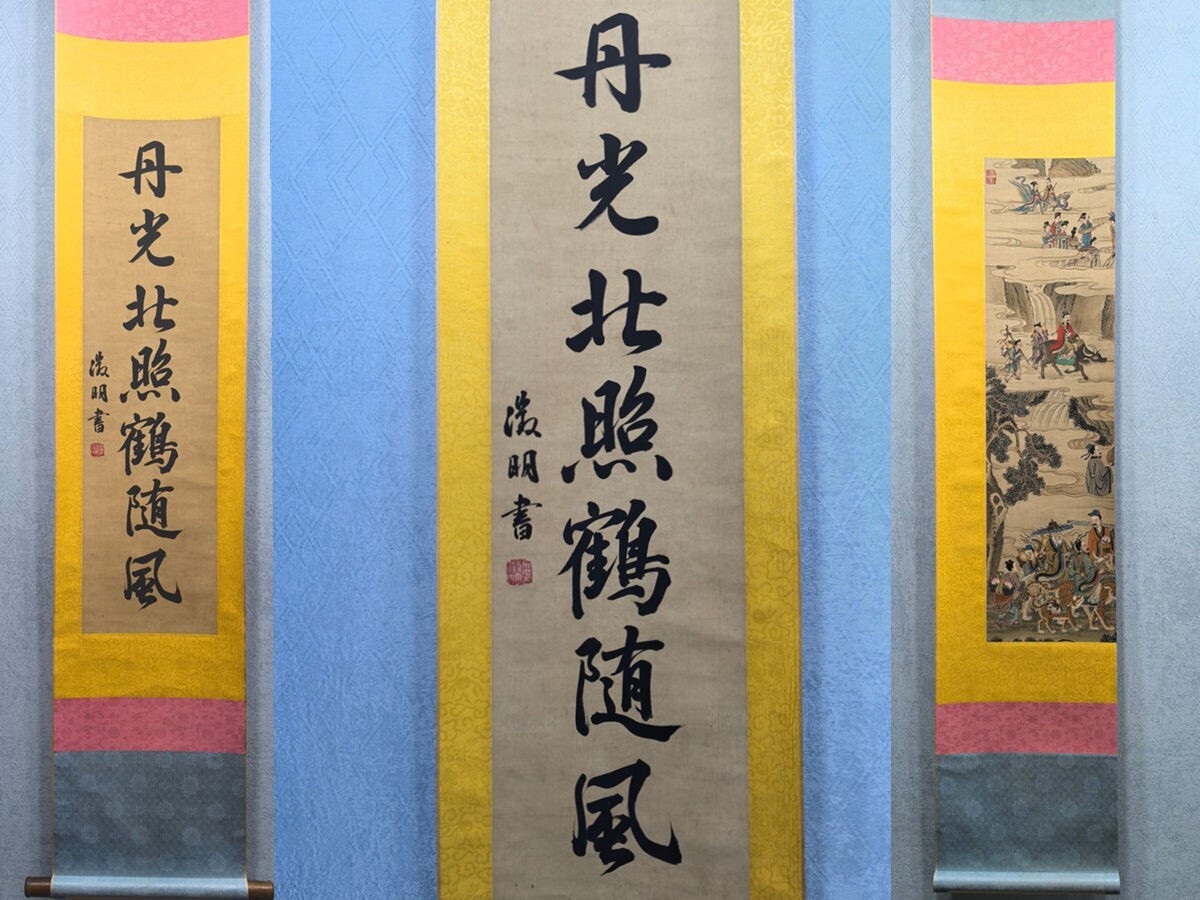 丹光北照鶴随風
徵明書
丹光北照鶴随風
徵明書